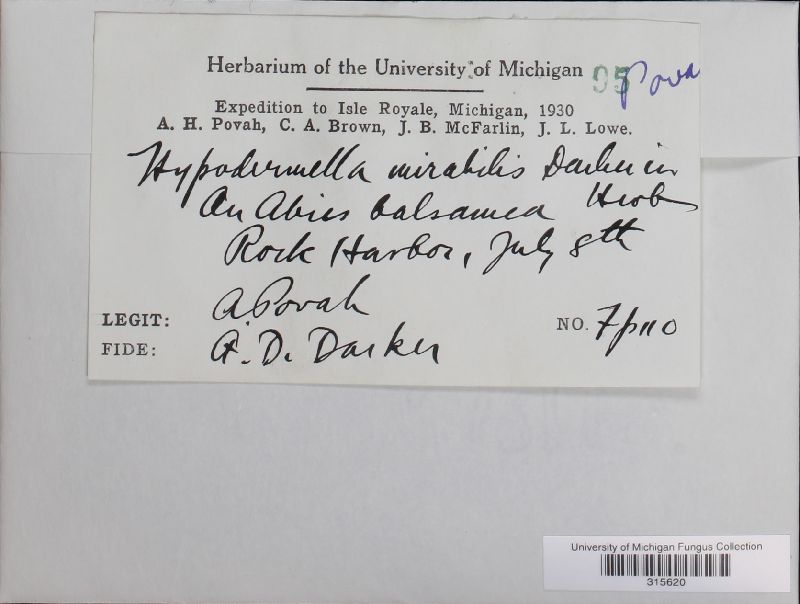 Herbarium of the University of Michigan 05 Pova
Expedition to Isle Royale, Michigan, 1930
A. H. Povah, C. A. Brown, J. B. McFarlin, J. L. Lowe.
Hypodermella mirabilis Darker in
On Abies balsamea Herb
Rock Harbor, July 8th
LEGIT: A. Povah
NO.
FIDE: G. D. Darker
University of Michigan Fungus Collection
315620